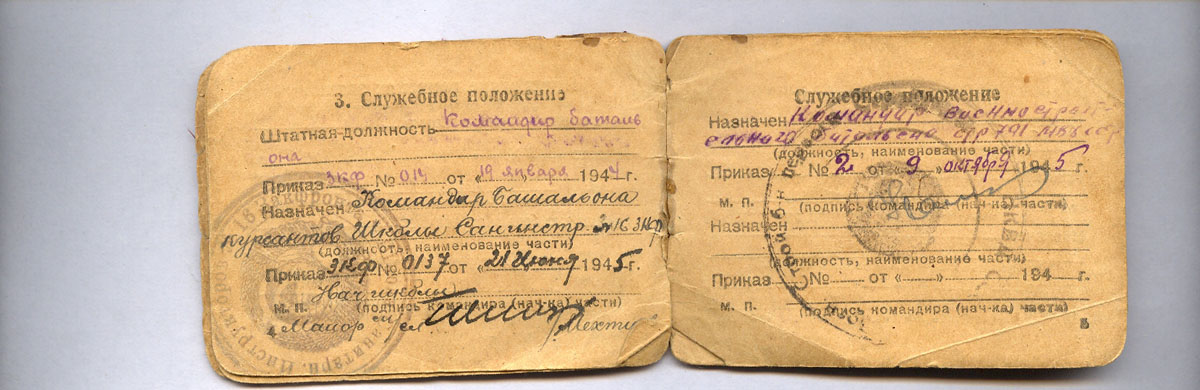 3. Служебное положение
Штатная должность Командир баталь
она
Приказ ЗКФ № 014 от „19 января 1944 г.
Назначен Командир Батальона
курсантов Школы Санинстр. №16 ЗКФ
(должность, наименование части)
Приказ ЗКФ № 0137 от „21 Июня 1945 г.
Нач школы
м. п. (подпись командира (нач-ка) части)
4 Майор м/с
Служебное положение
Назначен Командир военностроит-
ельного
(должность, наименование части)
Приказ № 2 от „9„ октября 1945 г.
м. п. (подпись командира (нач-ка) части)
Назначен
(должность, наименование части)
Приказ № от „ “ 194 г.
м. п. (подпись командира (нач-ка) части)
5